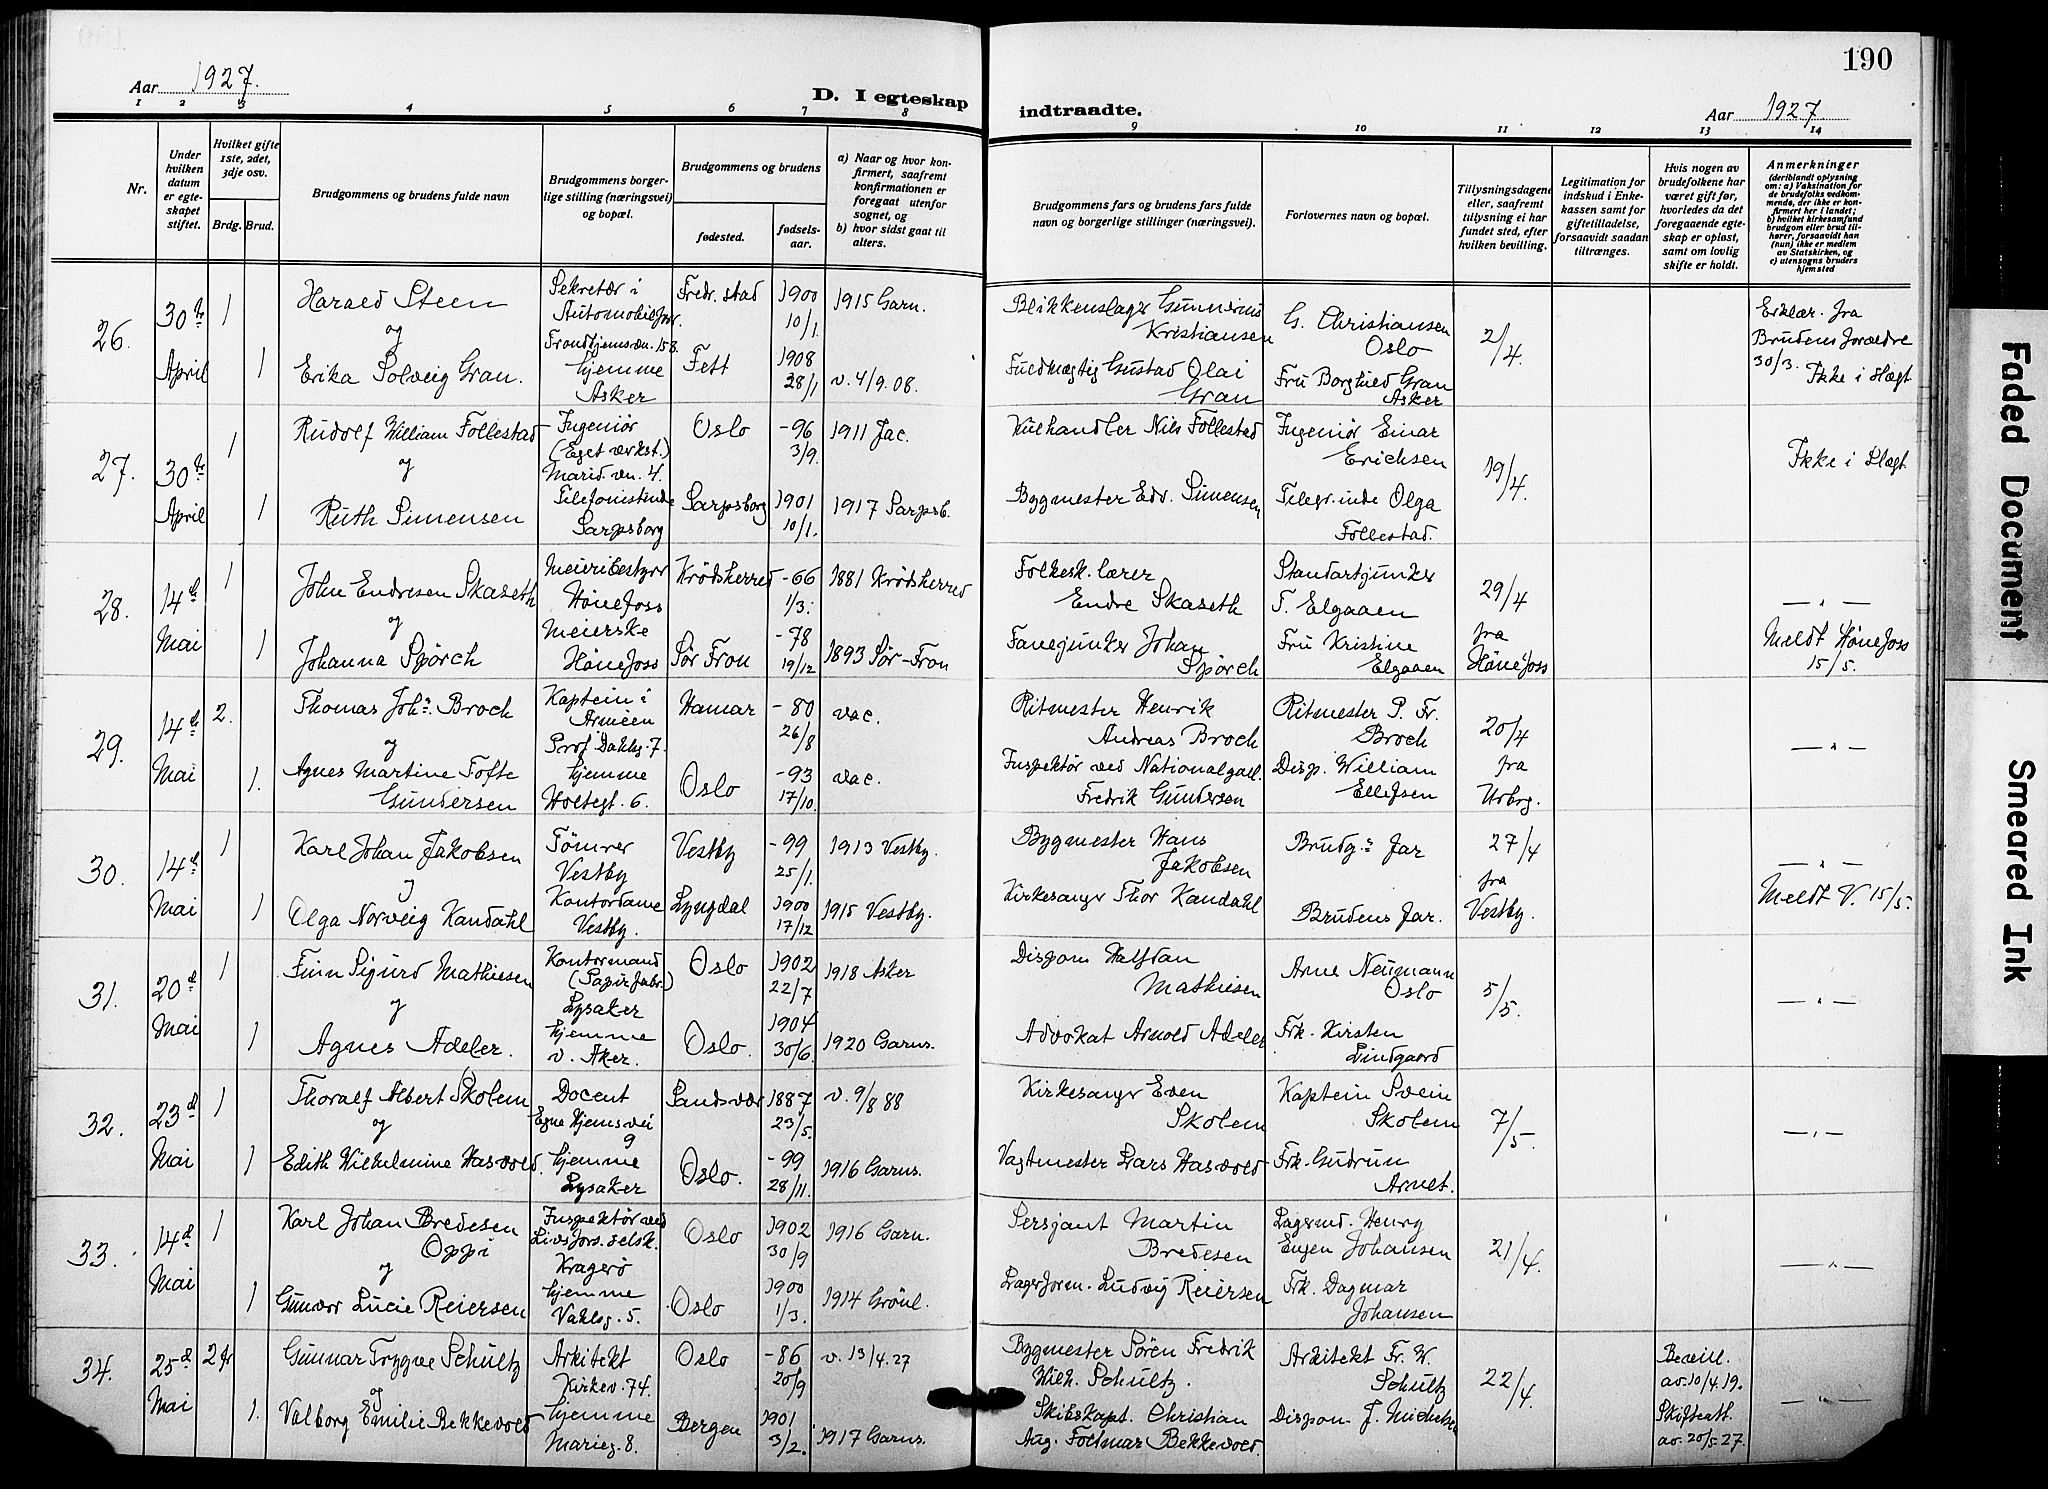 190
Aar 1927.
D. I egteskap
indtraadte.
Aar 1927.
1 2 3 4 5 6 7 8 9 10 11 12 13 14
Nr.
Under hvilken datum er egteskapet stiftet.
Hvilket gifte 1ste, 2det, 3dje osv.
Brdg. Brud.
Brudgommens og brudens fulde navn
Brudgommens borgerlige stilling (næringsvei) og bopæl.
Brudgommens og brudens
fødested.
fødselsaar.
a) Naar og hvor konfirmert, saafremt konfirmationen er foregaat utenfor sognet, og
b) hvor sidst gaat til alters.
Brudgommens fars og brudens fars fulde navn og borgerlige stillinger (næringsvei).
Forlovernes navn og bopæl.
Tillysningsdagene eller, saafremt tillysning ei har fundet sted, efter hvilken bevilling.
Legitimation for indskud i Enkekassen samt for giftetilladelse, forsaavidt saadan tiltrænges.
Hvis nogen av brudefolkene har været gift før, hvorledes da det foregaaende egteskap er opløst, samt om lovlig skifte er holdt.
Anmerkninger
(deriblandt oplysning om: a) Vaksination for de brudefolks vedkommende, der ikke er konfirmert her i landet; b) hvilket kirkesamfund brudgom eller brud tilhører, forsaavidt han (hun) ikke er medlem av Statskirken, og c) utensogns bruders hjemsted
26. 30te April
1 Harald Steen
og
1 Erika Solveig Gran.
Sekretær i Automobilforr. Trondhjemsvn. 158.
hjemme Asker
Fredr.stad 1900 10/1. 1915 Garn.
Fett 1908 28/1 v. 4/9. 08.
Blikkenslager Gunnerius Kristiansen
Fuldmægtig Gustav Olai Gran
G. Christiansen Oslo
Fru Borghild Gran Asker
2/4.
Erklær. fra Brudens forældre 30/3. Ikke i slægt
27. 30te April
1 Rudolf William Follestad
og
1 Ruth Simensen
Ingeniør (Eget verkst.) Marid.vn. 4.
Telefonistinde Sarpsborg
Oslo -96 3/9. 1911 Jac.
Sarpsborg 1901 10/1. 1917 Sarpsb.
Kulhandler Nils Follestad
Bygmester Edv. Simensen
Ingeniør Einar Erichsen
Telegr.inde Olga Follestad.
19/4.
Ikke i slægt
28. 14de Mai
1 John Endresen Skaseth
og
1 Johanna Spörch
Meieribestyrer Hönefoss
Meierske Hönefoss
Krödsherred -66 1/3. 1881 Krödsherred
Sör Fron -78 19/12 1893 Sör-Fron
Folkesk. lærer Endre Skaseth
Fanejunker Johan Spörch
Standartjunker T. Elgaaen
Fru Kristine Elgaaen
29/4 fra Hönefoss
— " —
Meldt Hönefoss 15/5.
29. 14de Mai
2. Thomas Johs. Broch
og
1. Agnes Martine Tofte Gundersen
Kaptein i Armeen Prof. Dahlsg. 7.
hjemme Holtegt. 6.
Hamar -80 26/8 vac.
Oslo -93 17/10. vac.
Ritmester Henrik Andreas Broch
Inspektør ved Nationalgall. Fredrik Gundersen
Ritmester P. Fr. Broch
Disp. William Ellefsen
20/4 fra Urbrg.
— " —
30. 14de Mai
1 Karl Johan Jakobsen
og
1 Olga Norveig Kandahl
Tømrer Vestby
Kontordame Vestby.
Vestby -99 25/1. 1913 Vestby.
Lyngdal 1900 17/12 1915 Vestby.
Bygmester Hans Jakobsen
Kirkesanger Thor Kandahl
Brudg.s far
Brudens far.
27/4 fra Vestby.
— " —
Meldt V. 15/5.
31. 20de Mai
1 Finn Sigurd Mathiesen
og
1 Agnes Adeler.
Kontormand (Papirfabr.) Lysaker
hjemme v. Aker.
Oslo 1902 22/7 1918 Asker
Oslo. 1904 30/6. 1920 Garns.
Dispon. Halfdan Mathiesen
Advokat Arnold Adeler
Arne Neumann Oslo
Frk. Kirsten Lindgaard
5/5.
— " —
32. 23de Mai
1 Thoralf Albert Skolem
og
1 Edith Wilhelmine Hasvold.
Docent Egne Hjems vei 9
hjemme Lysaker
Sandsvær 1887 23/5. v. 9/8 88
Oslo. -99 28/11. 1916 Garns.
Kirkesanger Even Skolem
Vagtmester Lars Hasvold
Kaptein Svein Skolem
Frk. Gudrun Arnet.
7/5.
— " —
33. 14de Mai
1 Karl Johan Bredesen Oppi
og
1 Gunvor Lucie Reiersen
Inspektør ved Livsfors.selsk. Kragerö
hjemme Vahlsg. 5.
Oslo 1902 30/9 1916 Garn.
Oslo 1900 1/3. 1914 Grönl.
Sersjant Martin Bredesen
Lagerform. Ludvig Reiersen
Lagermd. Henry Eugen Johansen
Frk. Dagmar Johansen
21/4.
— " —
34. 25de Mai
2 fr Gunnar Trygve Schultz
og
1. Valborg Emilie Bekkevold
Arkitekt Kirkev. 74.
hjemme Marieg. 8.
Oslo -86 20/9 v. 13/4. 27
Bergen 1901 3/2. 1917 Garns.
Bygmester Sören Fredrik Wilh. Schultz.
Skibskapt. Christian Aug. Foltmar Bekkevold.
Arkitekt Fr. W. Schultz
Dispon. J. Michelsen
22/4.
Bevill. av. 10/4. 19. Skifteatt. av. 20/5. 27.
— " —
Faded Document
Smeared Ink